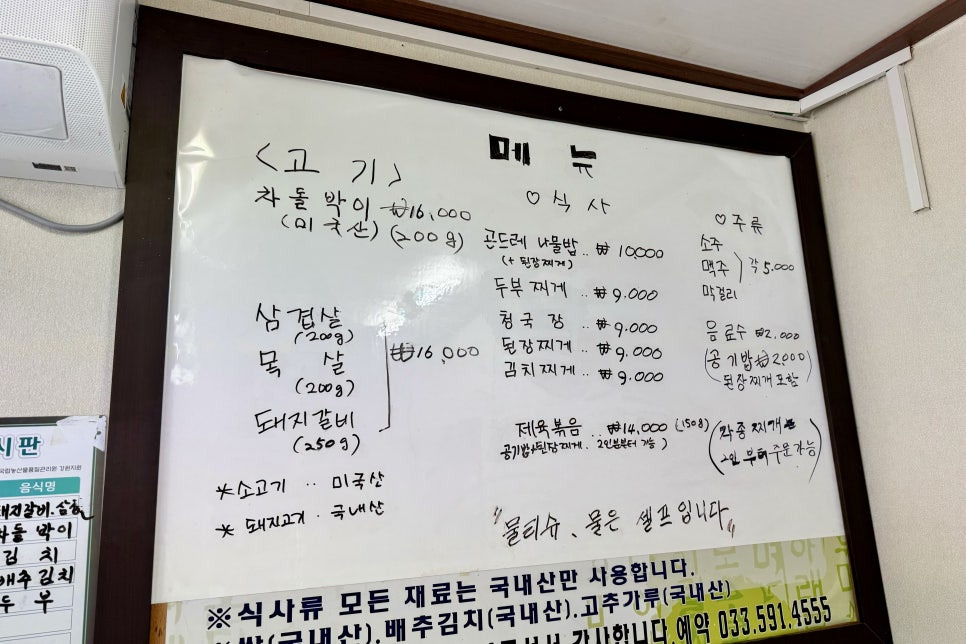 메뉴
<고기>
차돌박이 ₩16,000
(미국산) (200g)
삼겹살
(200g)
목살
(200g)
₩16,000
돼지갈비
(250g)
*소고기 .. 미국산
* 돼지고기 . 국내산
♡식사
곤드레 나물밥 .. ₩ 10,000
(+ 된장찌게)
두부찌게 .. ₩ 9.000
청국장 .. ₩ 9,000
된장찌게 .. ₩ 9.000
김치찌게 .. ₩ 9,000
제육볶음 .. ₩14,000 (150g)
공기밥+된장찌게. 2인분부터 가능)
♡주류
소주
맥주
막걸리
각 5.000
음료수 ₩2.000
(공기밥 ₩2,000
된장찌개 포함)
(각종 찌개
2인부터 주문가능)
"물티슈、물은 셀프입니다"
※식사류 모든 재료는 국내산만 사용합니다.
※쌀(국내산).배추김치(국내산).고추가루(국내산)
감사합니다.예약 033.591.4555
시판
국립농산물품질관리원 강원지원
음식명
돼지갈비.삼겹
차돌박이
김치
배추김치
두부